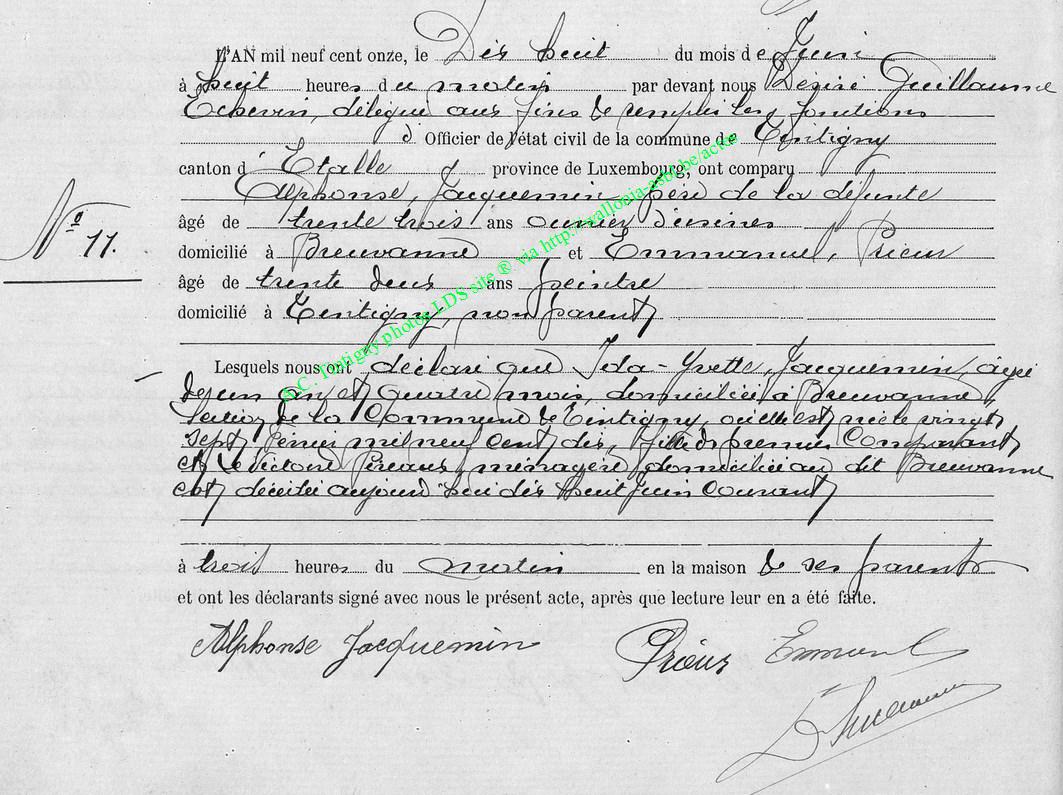 L'AN mil neuf cent onze, le Dix huit du mois de Juin
à huit heures du matin par devant nous Désiré Guillaume
Echevin, délégué aux fins de remplir les fonctions
d' Officier de l'état civil de la commune de Tintigny
canton d' Etalle province de Luxembourg, ont comparu
Alphonse, Jacquemin père de la défunte
N° 11.
âgé de trente trois ans ouvrier d'usines
domicilié à Breuvanne et Emmanuel, Prieur
âgé de trente deux ans peintre
domicilié à Tintigny, non parent
A.C. Tintigny photos LDS site ® via http://wallonia-asbl.be/actes
Lesquels nous ont déclaré que Ida-Yvette, Jacquemin, âgée
de un an et quatre mois, domiciliée à Breuvanne,
section de la Commune de Tintigny, où elle est née le vingt
sept Février mil neuf cent dix, fille du premier Comparant
et de Victorine ménagère domiciliée au dit Breuvanne
est décédée aujourd'hui dix huit Juin Courant
à trois heures du matin en la maison de ses parents
et ont les déclarants signé avec nous le présent acte, après que lecture leur en a été faite.
Alphonse Jacquemin Prieur Emmanuel
D Guillaume